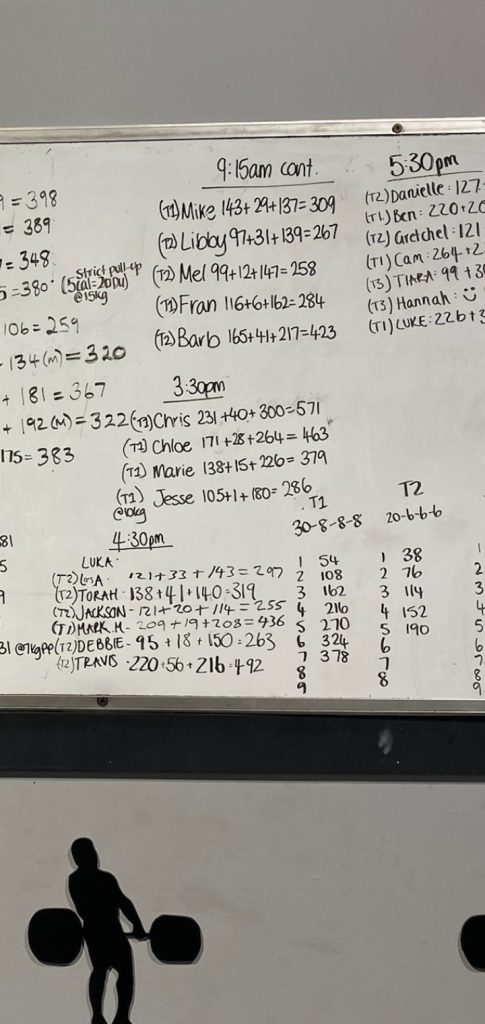 = 398
= 389
= 348
= 380 (5cal=20DU) strict pull-up @15kg
106 = 259
134(M) = 320
+ 181 = 367
+ 192(M) = 322
175 = 383
9:15am cont.
(T1) Mike 143+29+137=309
(T2) Libby 97+31+139=267
(T2) Mel 99+12+147=258
(T1) Fran 116+6+162=284
(T2) Barb 165+41+217=423
3:30pm
Chris 231+40+300=571
(T1) Chloe 171+28+264=463
(T1) Marie 138+15+226=379
(T1) Jesse 105+1+180=286
@10kg
4:30pm
LUKA
(T2) 121+33+143=297
(T2) TORAH 138+41+140=319
(T2) JACKSON - 121+20+114=255
(T1) MARK.M. 209+19+208=436
31 @7kgPP (T2) DEBBIE - 95+18+150=263
(T2) TRAVIS 220+56+216=492
5:30pm
(T2) Danielle: 127
(T1) Ben: 220+20
(T2) Gretchel: 121
(T1) Cam: 264+2
TIARA: 99+30
(T3) Hannah: ☺
(T1) LUKE: 226+3
T1
30-8-8-8
1 54
2 108
3 162
4 216
5 270
6 324
7 378
8
9
T2
20-6-6-6
1 38
2 76
3 114
4 152
5 190
6
7
8
1
2
3
4
5
6
7
8
9
81
5
9